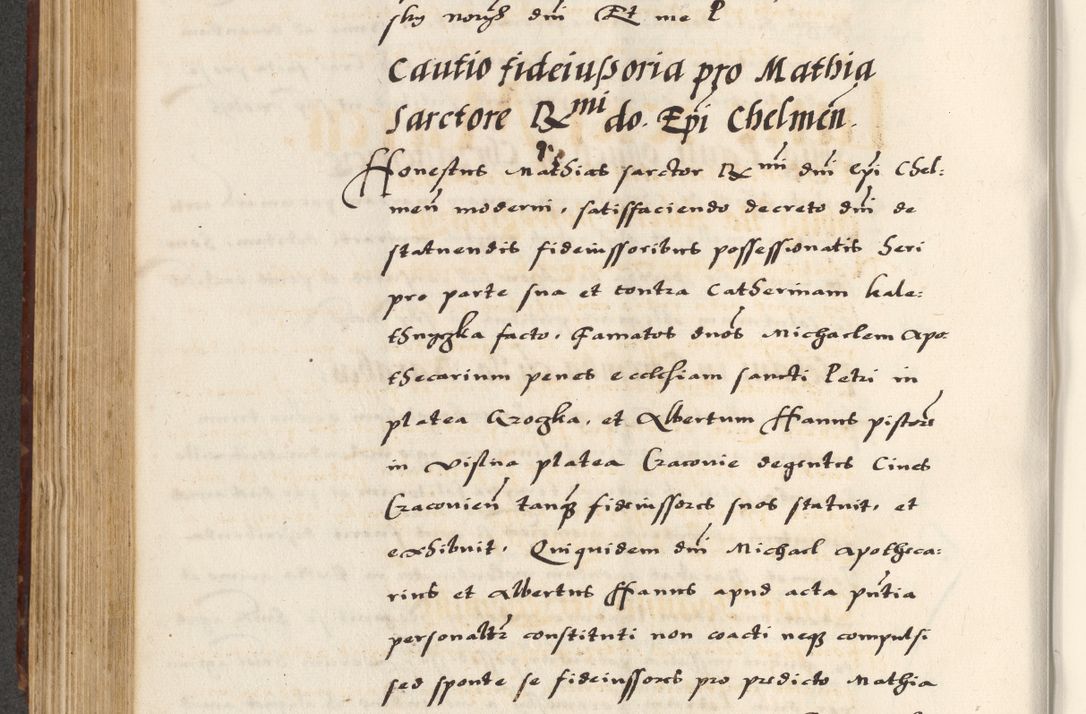 sky norẏ dni Et me P
Cautio fideiußoria pro Mathia
Sarctore Rmi do. Epi Chelmen.
Honestus Mathias sarctor Rmi dni Epi Chel:
men moderni, satisfaciendo decreto dni de
statuendis fideiussoribus possessionatis heri
pro parte sua et contra Catherinam kale:
thnyczka facto, famatos dnos Michaelem Apo
thecarium penes ecclesiam sancti Petri in
platea Groczka, et Albertum ffanus pistore
in Vislna platea Cracovie degentes Cives
Cracovien tanq fideiussores suos statuit, et
exhibuit, Quiquidem dni Michael Apotheca:
rius et Albertus ffanus apud acta pntia
personaltr constituti non coacti neq compulsi
sed sponte se fideiussores pro predicto Mathia